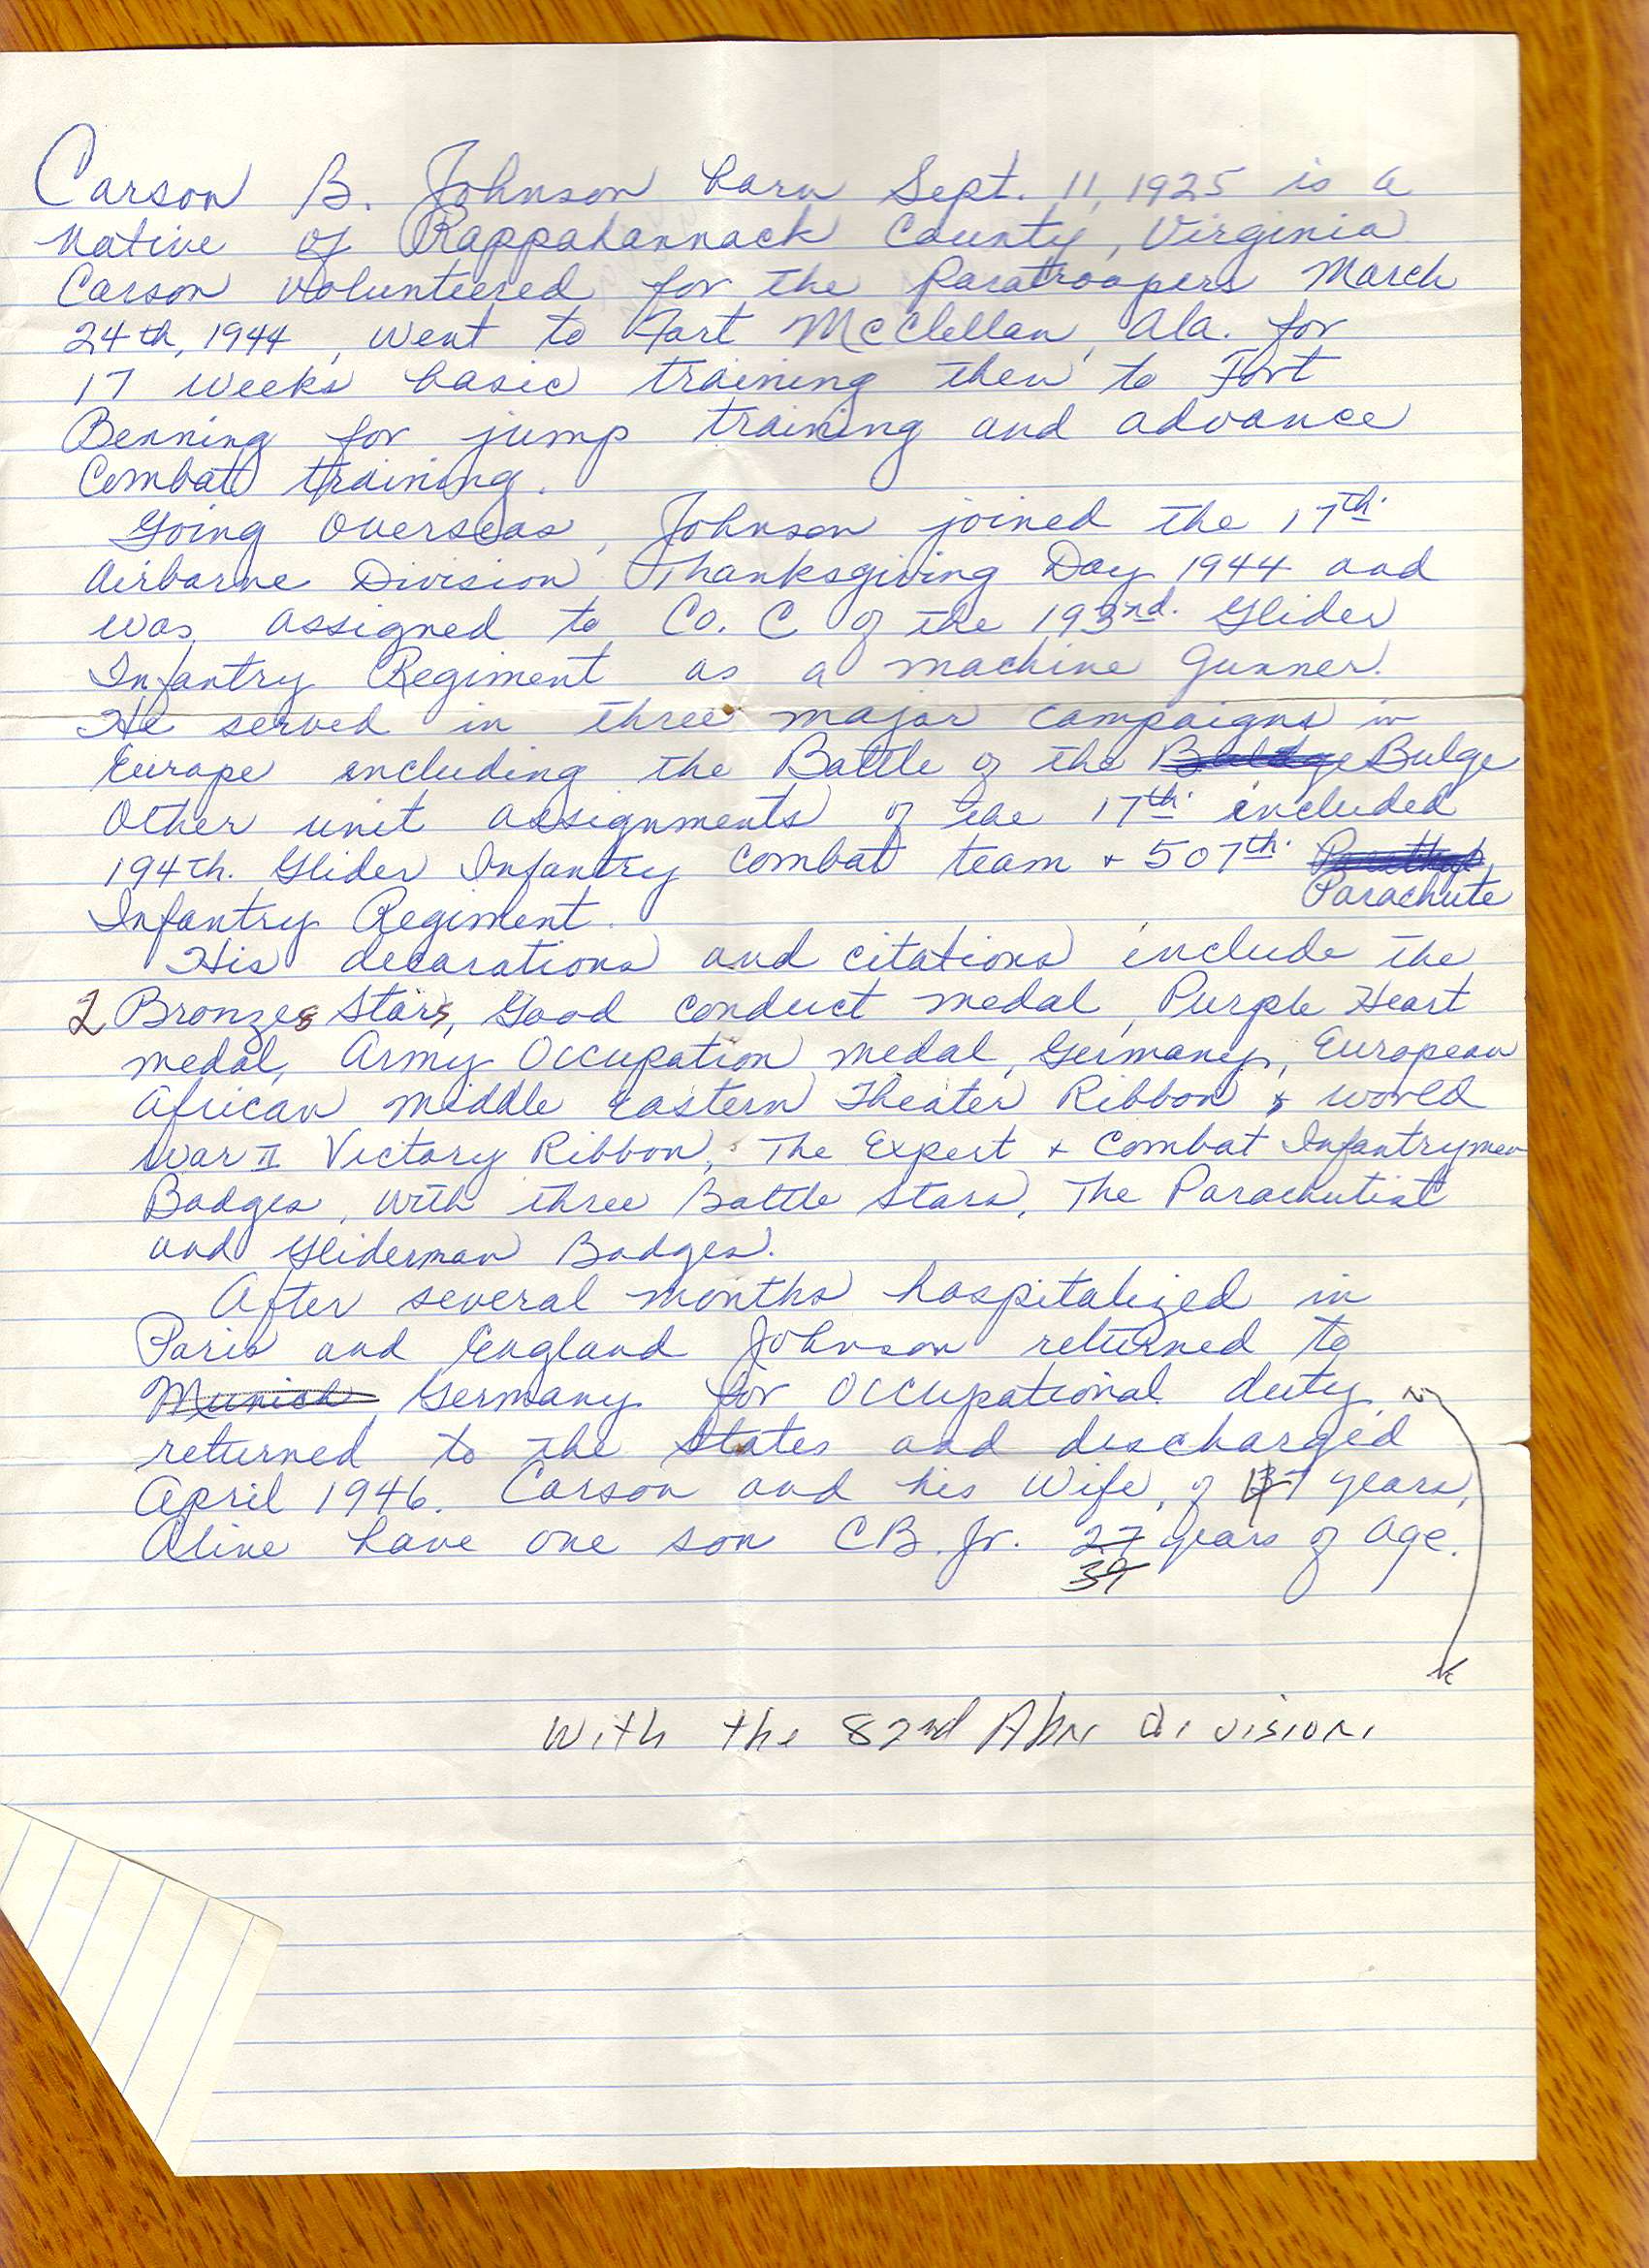 Carson B. Johnson born Sept. 11, 1925 is a
Native of Rappahannack County, Virginia
Carson volunteered for the Paratroopers March
24th, 1944, went to Fort McClellan, Ala. for
17 weeks basic training then to Fort
Benning for jump training and advance
Combat training.
Going Overseas, Johnson joined the 17th.
Airborne Division Thanksgiving Day 1944 and
was assigned to Co. C of the 193nd. Glider
Infantry Regiment as a machine Gunner.
He served in three major campaigns in
Europe including the Battle of the Buldge Bulge
Other unit assignments of the 17th. included
194th. Glider Infantry Combat team + 507th.
Parachute
Infantry Regiment.
His decorations and citations include the
2 Bronzes Stars, Good conduct medal, Purple Heart
medal, Army Occupation medal, Germany, European
African middle Eastern Theater Ribbon & World
War II Victory Ribbon, The Expert + Combat Infantrymen
Badges, with three Battle Stars, The Parachutist
and Gliderman Badges.
After several months hospitalized in
Paris and England Johnson returned to
Munich Germany for Occupational duty
returned to the States and discharged
April 1946. Carson and his Wife, of years,
Aline have one son CB. Jr. 27 years of age.
39
With the 82nd Abn division.